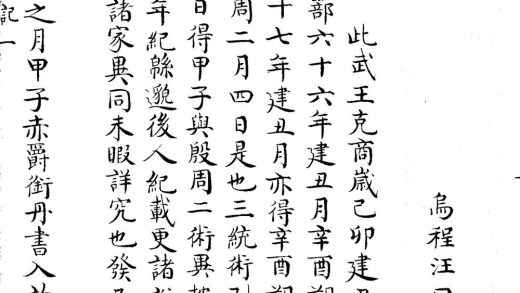 烏程汪
此武王克商嵗己卯建
部六十六年建丑月辛酉朔
十七年建丑月亦得辛酉朔
周二月四日是也三統術
日得甲子與殷周二術異
年紀緜邈後人紀載更諸
諸家異同未暇詳究也發
之月甲子赤爵銜丹書入
記一